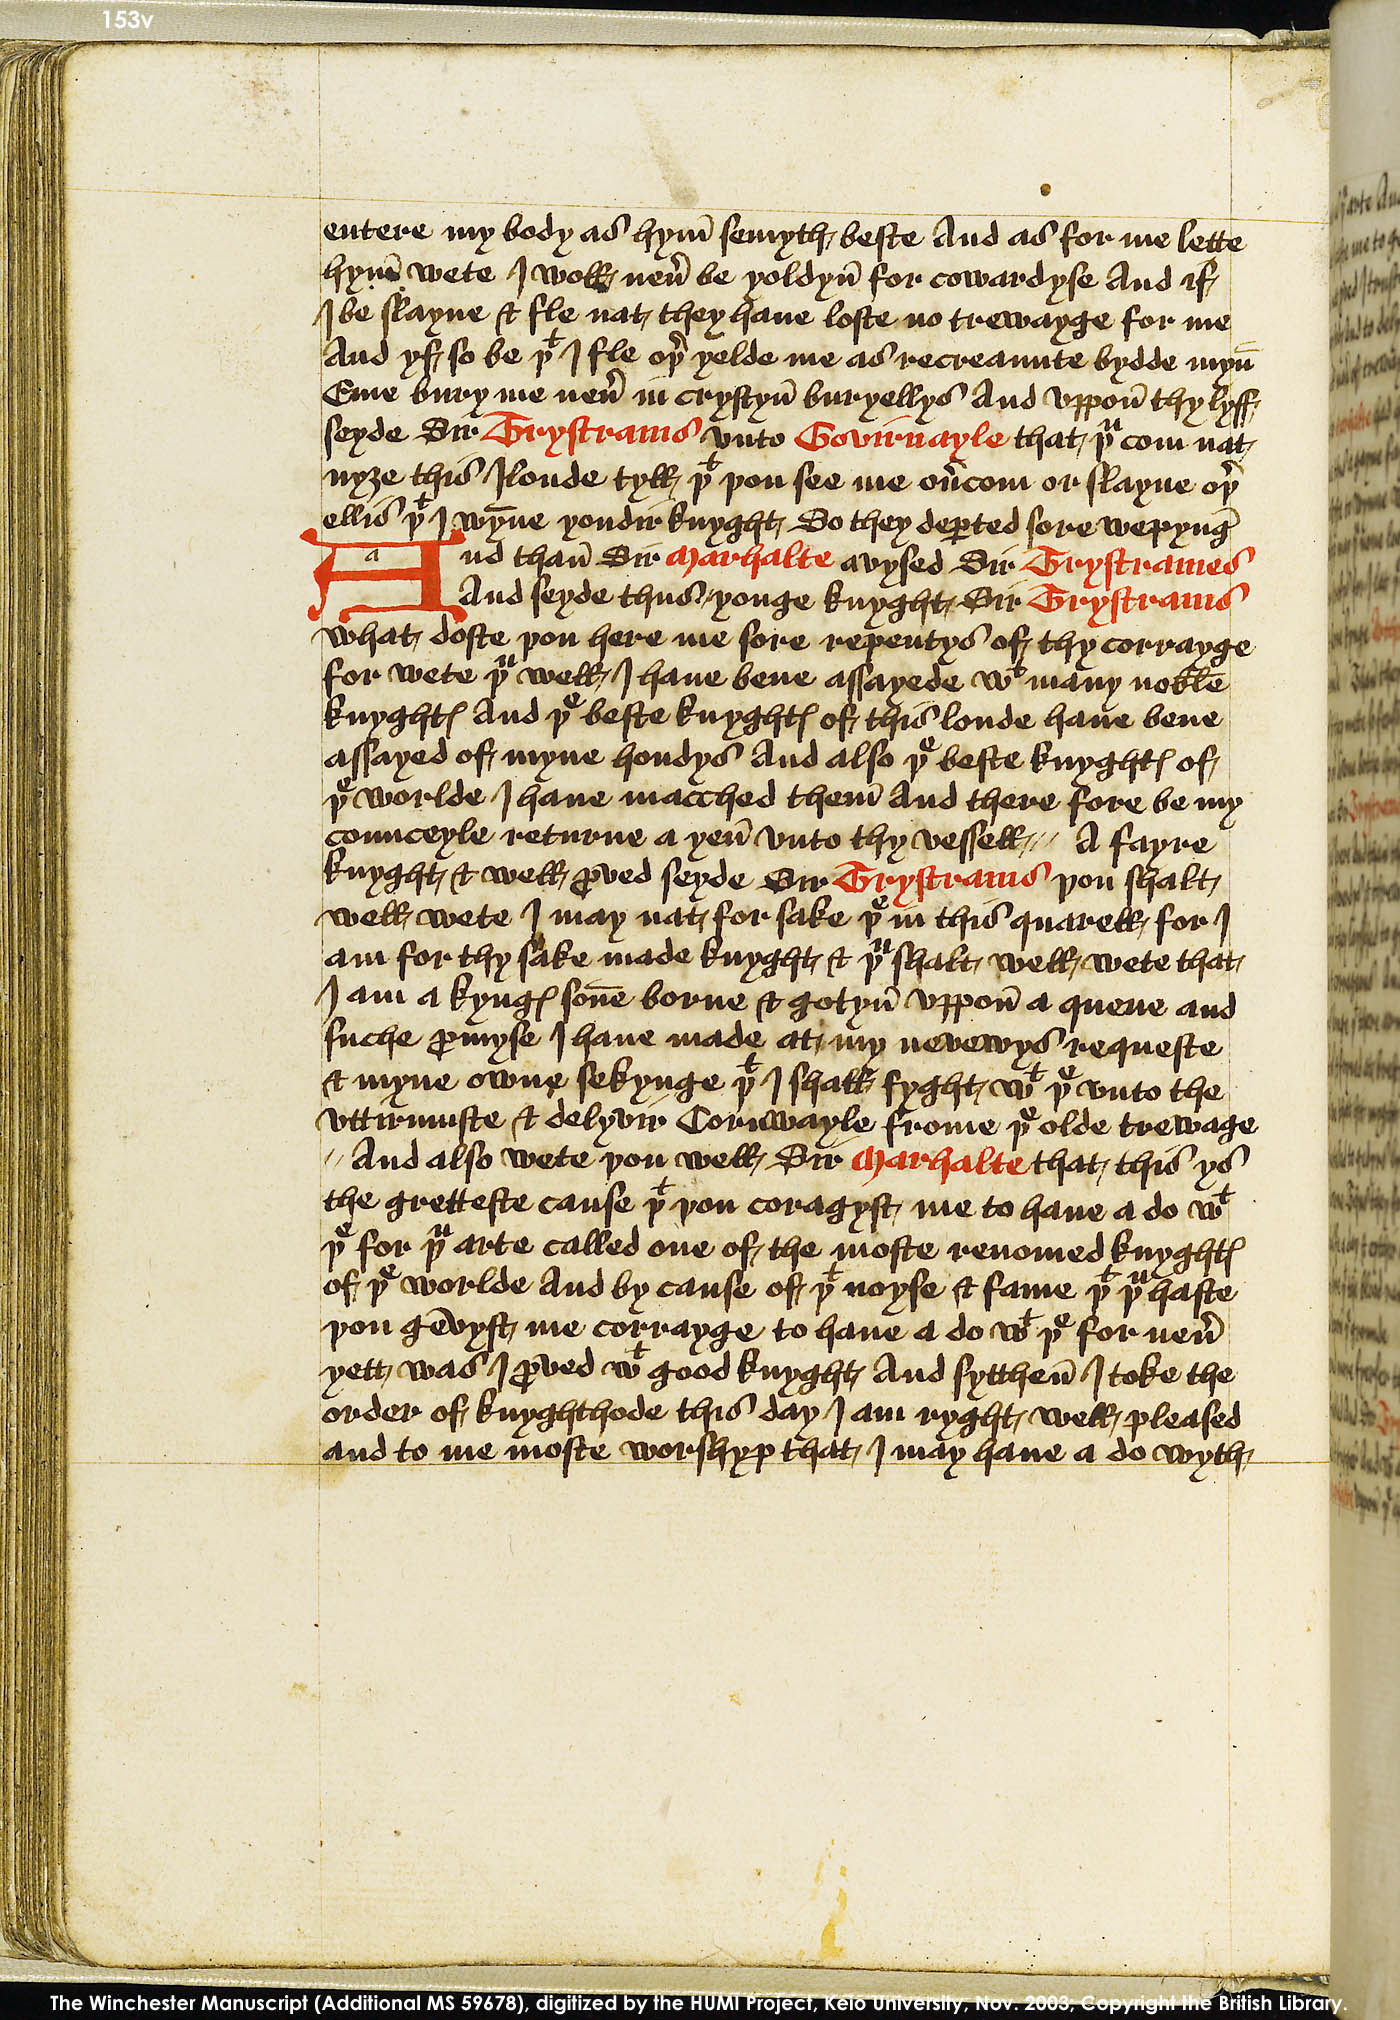 153v
entere my body as hym̄ semyth beste And as for me lette
hym̄ wete I woll neu̾ be yoldyn̄ for cowardyse And if
I be slayne & fle nat they haue loste no trewayge for me
And yf so be þᵗ I fle oþ̾ yelde me as recreaunte bydde myn̄
Eme bury me neu̾ in crystyn̄ buryellys And vppon̄ thy lyff
seyde Sir Trystrams vnto Govirnayle that þᵘ com nat
nyȝe this Ilonde tyll þᵗ þou see me ou̾com or slayne oþ̾
ellis þᵗ I wȳne yondir knyght So they deꝑted sore wepyng̾
a
And than̄ Sir Marhalte avysed Sir Trystrames
And seyde thus / yonge knyght Sir Trystrams
what doste þou here me sore repentys of thy corrayge
for wete þᵘ well I haue bene assayede wᵗ many noble
knyghtꝭ And þᵉ beste knyghtꝭ of this londe haue bene
assayed of myne hondys And also þᵉ beste knyghtꝭ of
þᵉ worlde I haue macched them̄ And there fore be my
counceyle returne a yen̄ vnto thy vessell // A fayre
knyght & well ꝓved seyde Sir Trystrams þou shalt
well wete I may nat for sake þᵉ in this quarell for I
am for thy sake made knyght & þᵘ shalt well wete that
I am a kyngꝭ son̄e borne & gotyn̄ vppon̄ a quene and
suche ꝓmyse I haue made at my nevewys requeste
& myne owne sekynge þᵗ I shall fyght wᵗ þᵉ vnto the
vttirmuste & delyvir Cornwayle frome þᵉ olde trewage
// And also wete þou well Sir Marhalte that this ys
the gretteste cause þᵗ þou coragyst me to haue a do wᵗ
þᵉ for þᵘ arte called one of the moste renomed knyghtꝭ
of þᵉ worlde And by cause of þᵗ noyse & fame þᵗ þᵘ haste
þou gēvyst me corrayge to haue a do wᵗ þᵉ for neu̾
yett was I ꝓved wᵗ good knyght And sytthen̄ I toke the
order of knyghthode this day I am ryght well pleased
and to me moste worshyp that I may haue a do wyth
The Winchester Manuscript (Additional MS 59678), digitized by the HUMI Project, Keio University, Nov. 2003; Copyright the British Library.